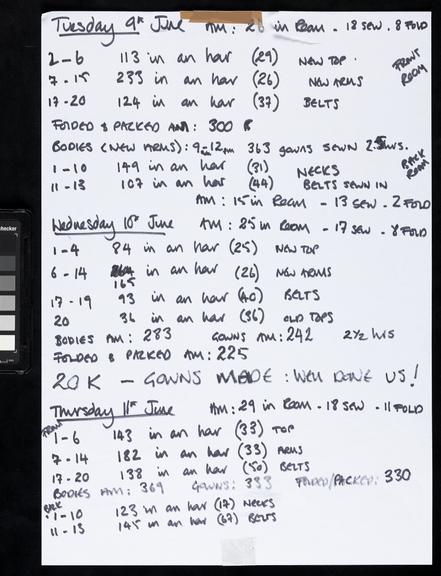 Tuesday 9th June AM: 26 in Room - 18 SEW - 8 FOLD
2-6 113 in an hour (29) NEW TOP
FRONT ROOM
7-15 233 in an hour (26) NEW ARMS
17-20 124 in an hour (37) BELTS
FOLDED & PACKED AM: 300
BODIES (NEW ARMS): 9am-12am 363 gowns SEWN 2.5hrs.
BACK ROOM
1-10 149 in an hour (31) NECKS
11-13 107 in an hour (44) BELTS SEWN IN
AM: 15 in Room - 13 SEW - 2 FOLD
Wednesday 10th June AM: 25 in Room - 17 SEW - 8 FOLD
1-4 84 in an hour (25) NEW TOP
6-14 165 in an hour (26) NEW ARMS
17-19 93 in an hour (40) BELTS
20 36 in an hour (36) OLD TOPS
BODIES AM: 283 GOWNS AM: 242 2½ hrs
FOLDED & PACKED AM: 225
20K - GOWNS MADE: WELL DONE US!
Thursday 11th June AM: 29 in Room - 18 SEW - 11 FOLD
FRONT
1-6 143 in an hour (33) TOP
7-14 182 in an hour (33) ARMS
17-20 138 in an hour (50) BELTS
BODIES AM: 369 GOWNS: 333 FOLDED/PACKED: 330
BACK
1-10 123 in an hour (17) NECKS
11-13 145 in an hour (67) BELTS